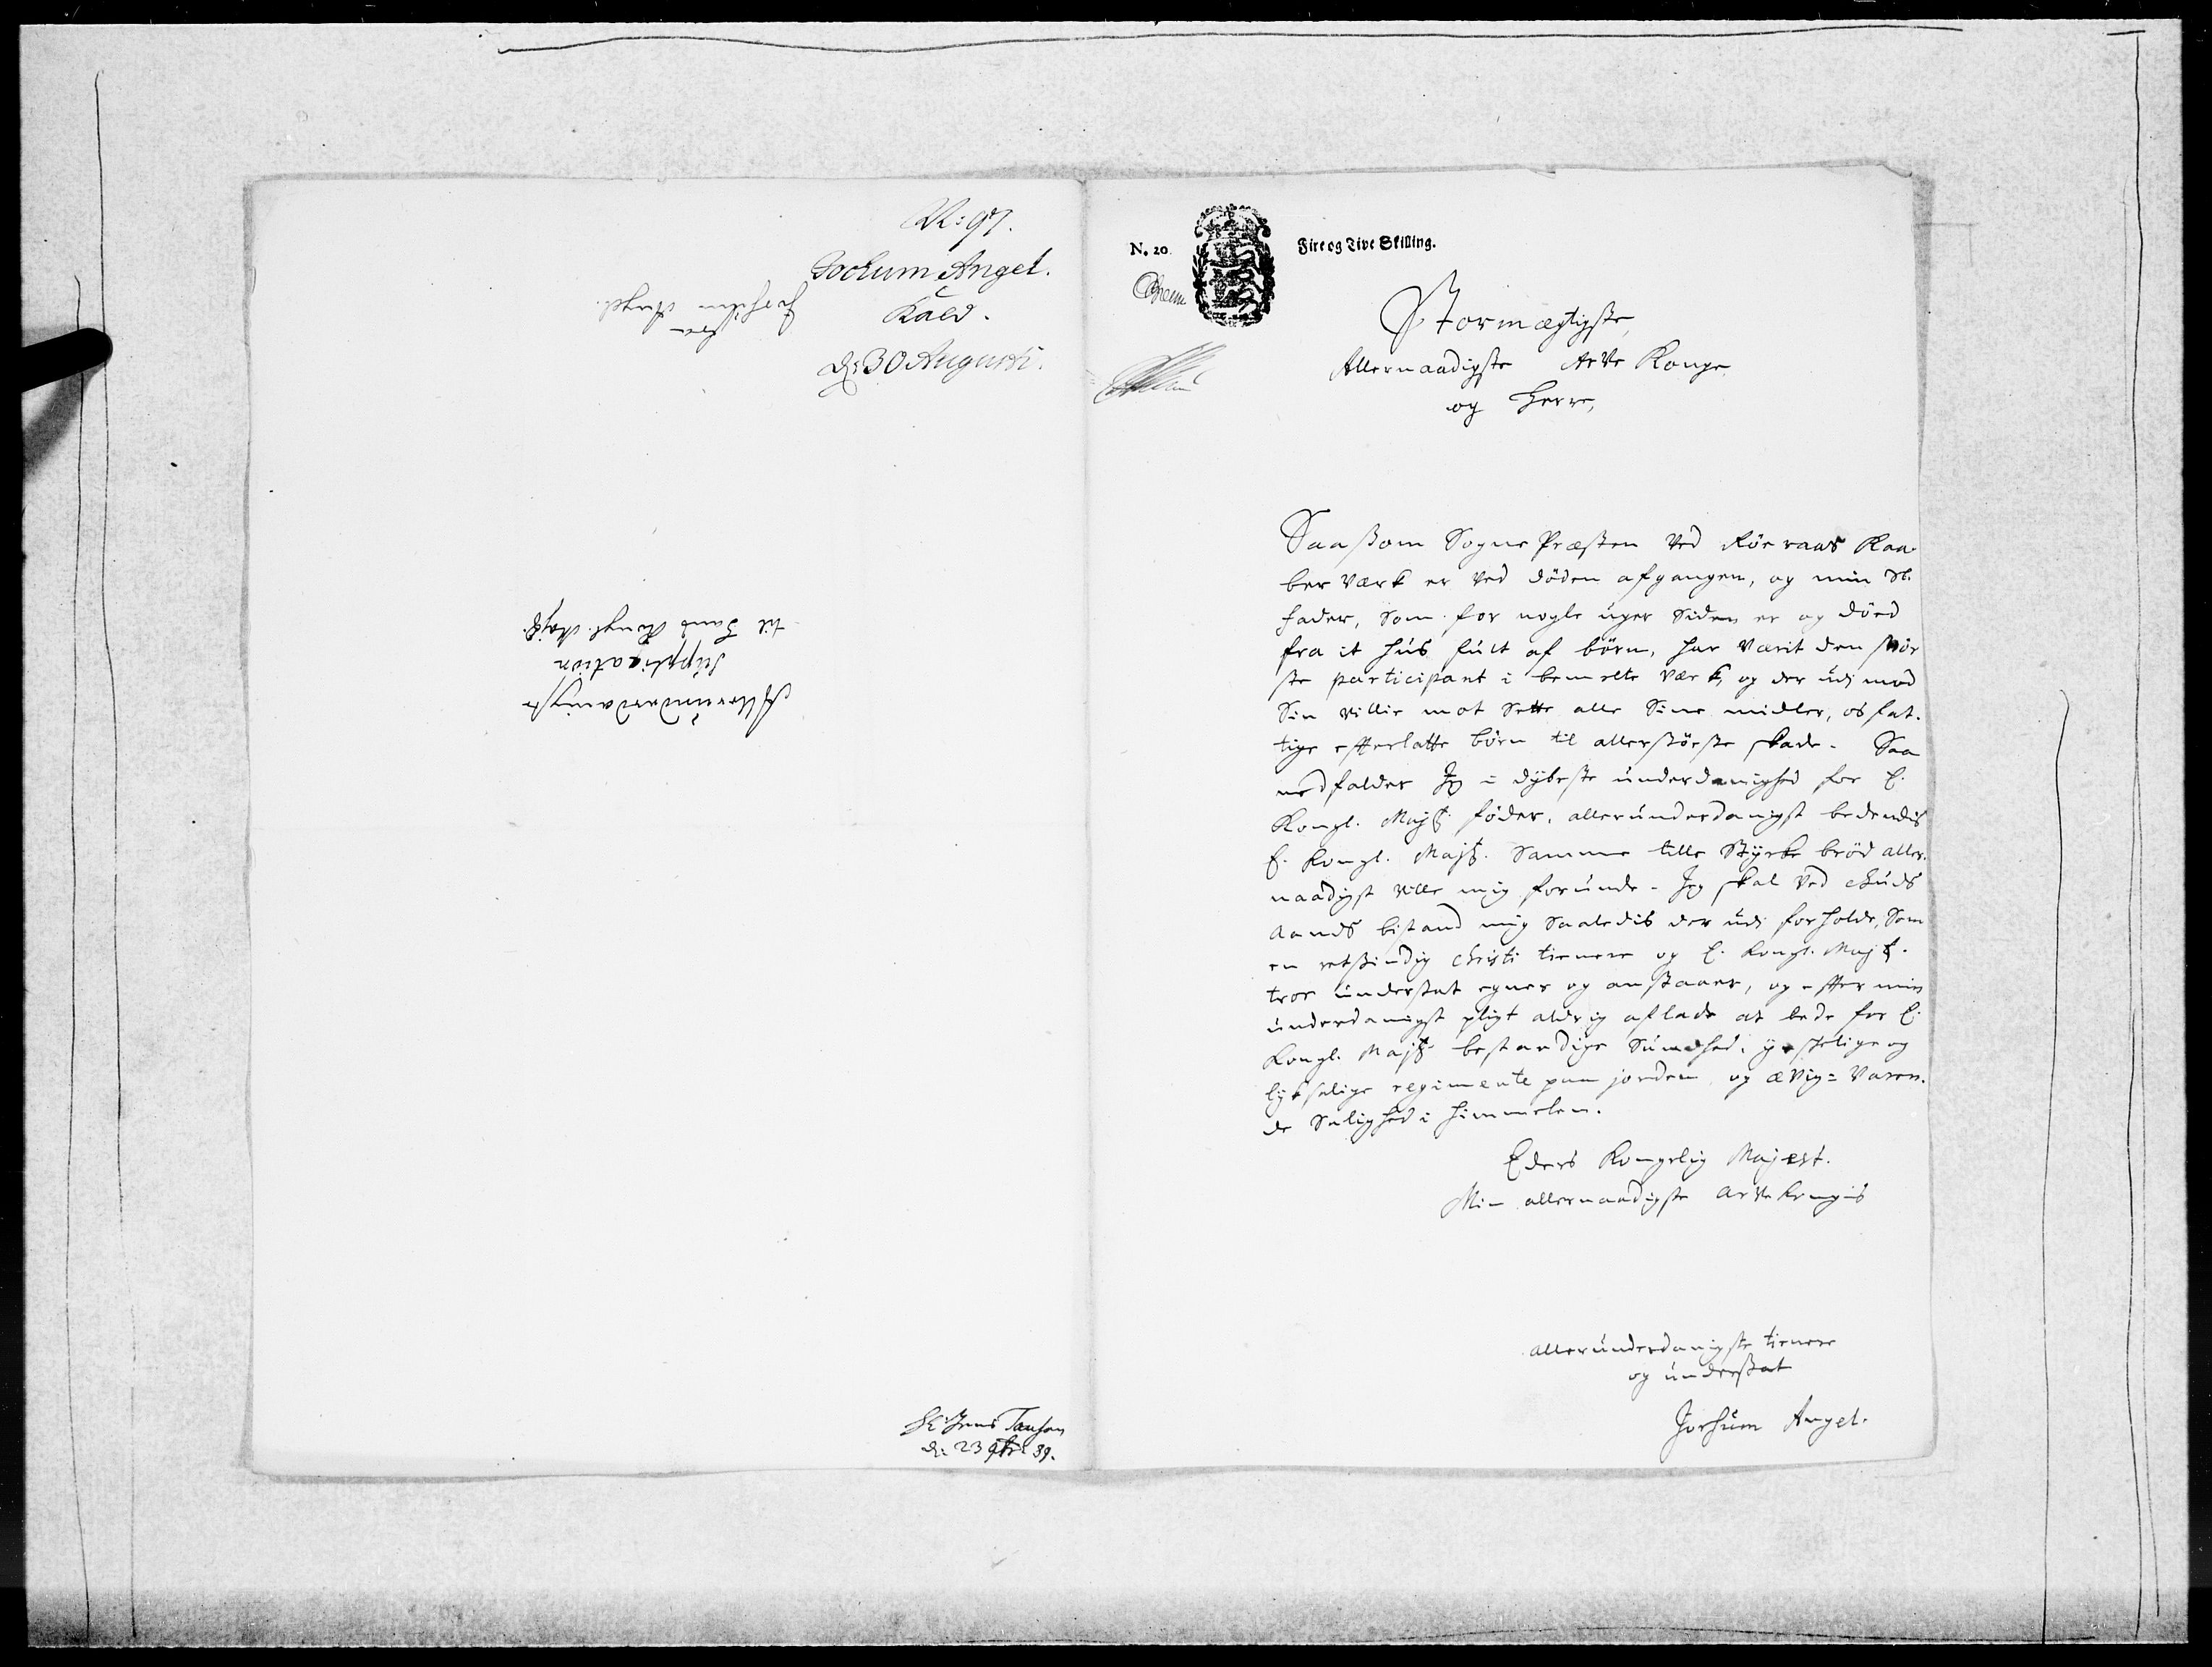 N: 97.
Jochum Angel.
Kald.
d: 30 Augusti.
fra
Jochum Angel.
Allerunderdanigste
supplication
til Hans Kongl. Maj:t.
Hr Jens Tausan
d: 23 9br: 89.
N. 20.
Fire og Tive Skilling.
Stormægtigste,
Allernaadigste Arve Konge
og Herre,
Saasom Sogne Præsten ved Röeraas Kaa-
ber værk er ved döden afgangen, og min Sl.
fader, som for nogle uger siden er og död
fra it hus fult af börn, har værit den stör
ste participant i bemelte værk, og der udi mod
Sin villie mot sette alle Sine midler, os fat-
tige efterlatte börn til allerstörste skade. Saa
nedfalder Jeg i dybeste underdanighed for E.
Kongl. Maj:t. föder, allerunderdanigst bedendis
E. Kongl. Maj:t. samme lille Stycke bröd aller-
naadigst ville mig forunde. Jeg skal ved Guds
Aands bistand mig saaledis der udi forholde, Som
en retsindig Christi tienere og E. Kongl. Maj:t.
troe understat egner og anstaaer, og efter min
underdanigst pligt aldrig aflade at bede for E.
Kongl. Maj:t. bestandige Sundhed, og
lyksalige regimente paa jorden, og ævig=varen-
de Salighed i himmelen.
Eders Kongelig Majest.
Min allernaadigste Arve Kongis
allerunderdanigste tienere
og understat
Jochum Angel.